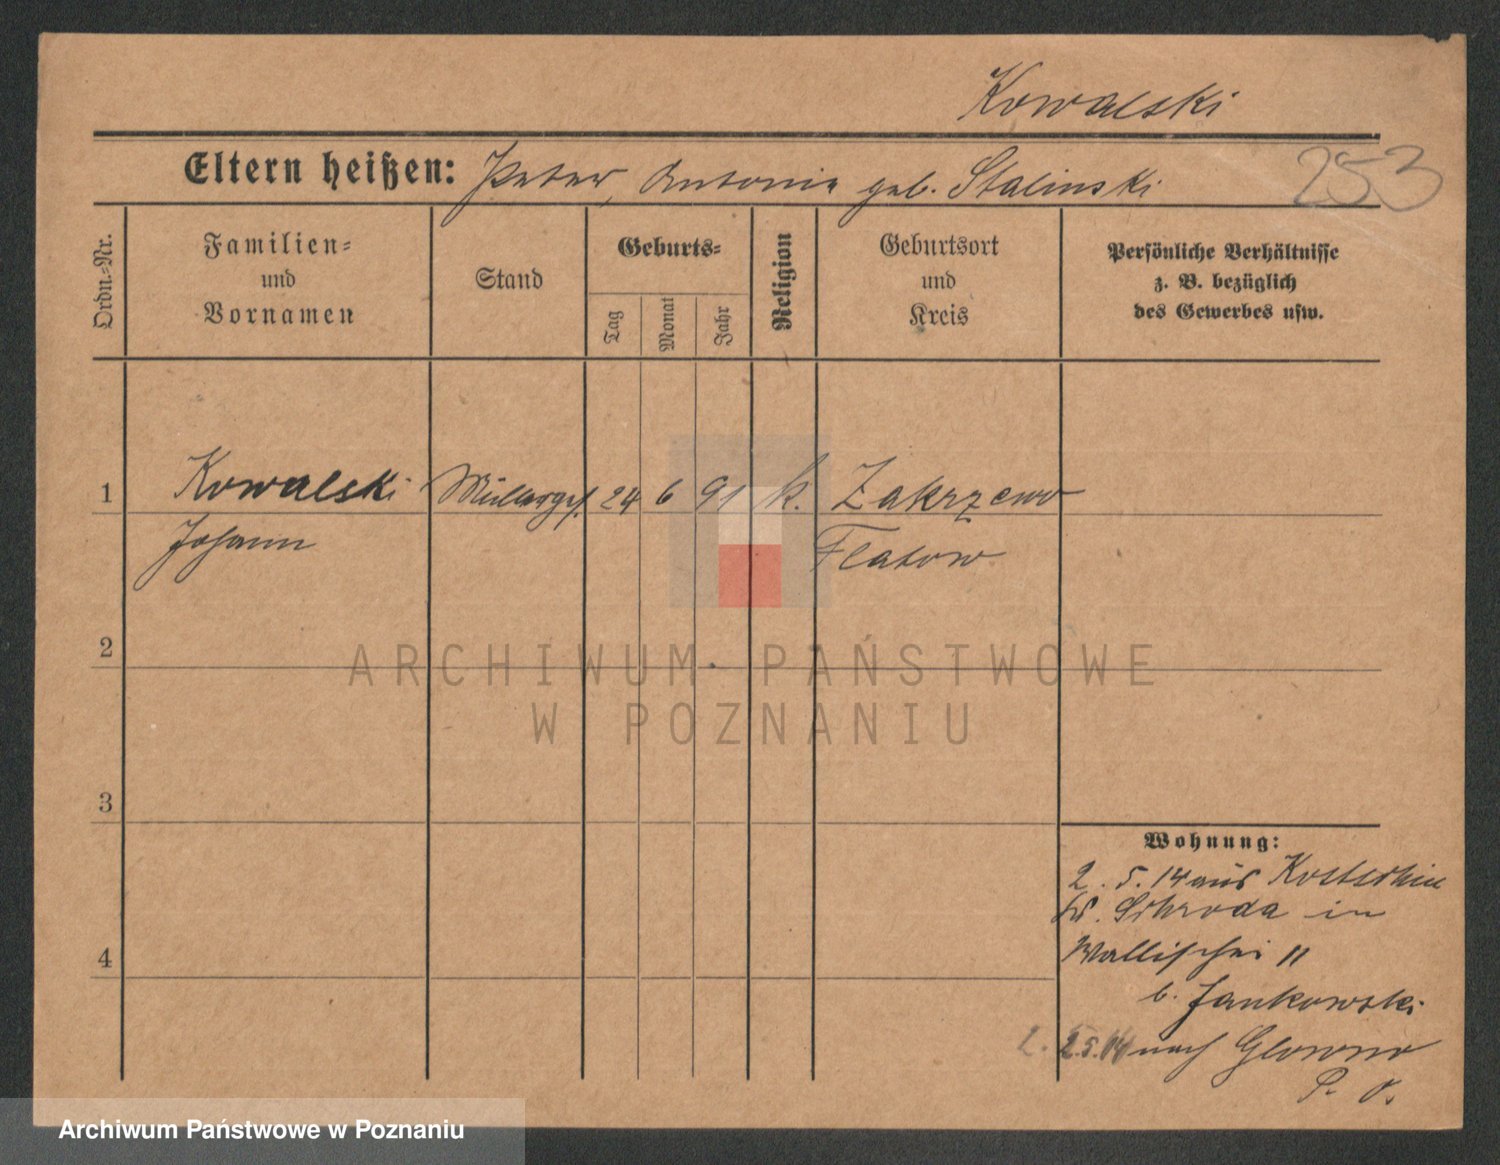 Kowalski
Eltern heißen: Peter, Antonie geb. Stalinski
253
Ordn.-Nr.
Familien-
und
Vornamen
Stand
Geburts-
Tag
Monat
Jahr
Religion
Geburtsort
und
Kreis
Persönliche Verhältnisse
z. B. bezüglich
des Gewerbes usw.
1
Kowalski
Johann
Müllerges.
24
6
91
k.
Zakrzewo
Flatow
2
3
4
Wohnung:
2. 5. 14 aus Kostschin
Kr. Schroda in
Wallischei 11
b. Jankowski
2. 5. 14 nach Glowno
P. O.
ARCHIWUM PAŃSTWOWE
W POZNANIU
Archiwum Państwowe w Poznaniu